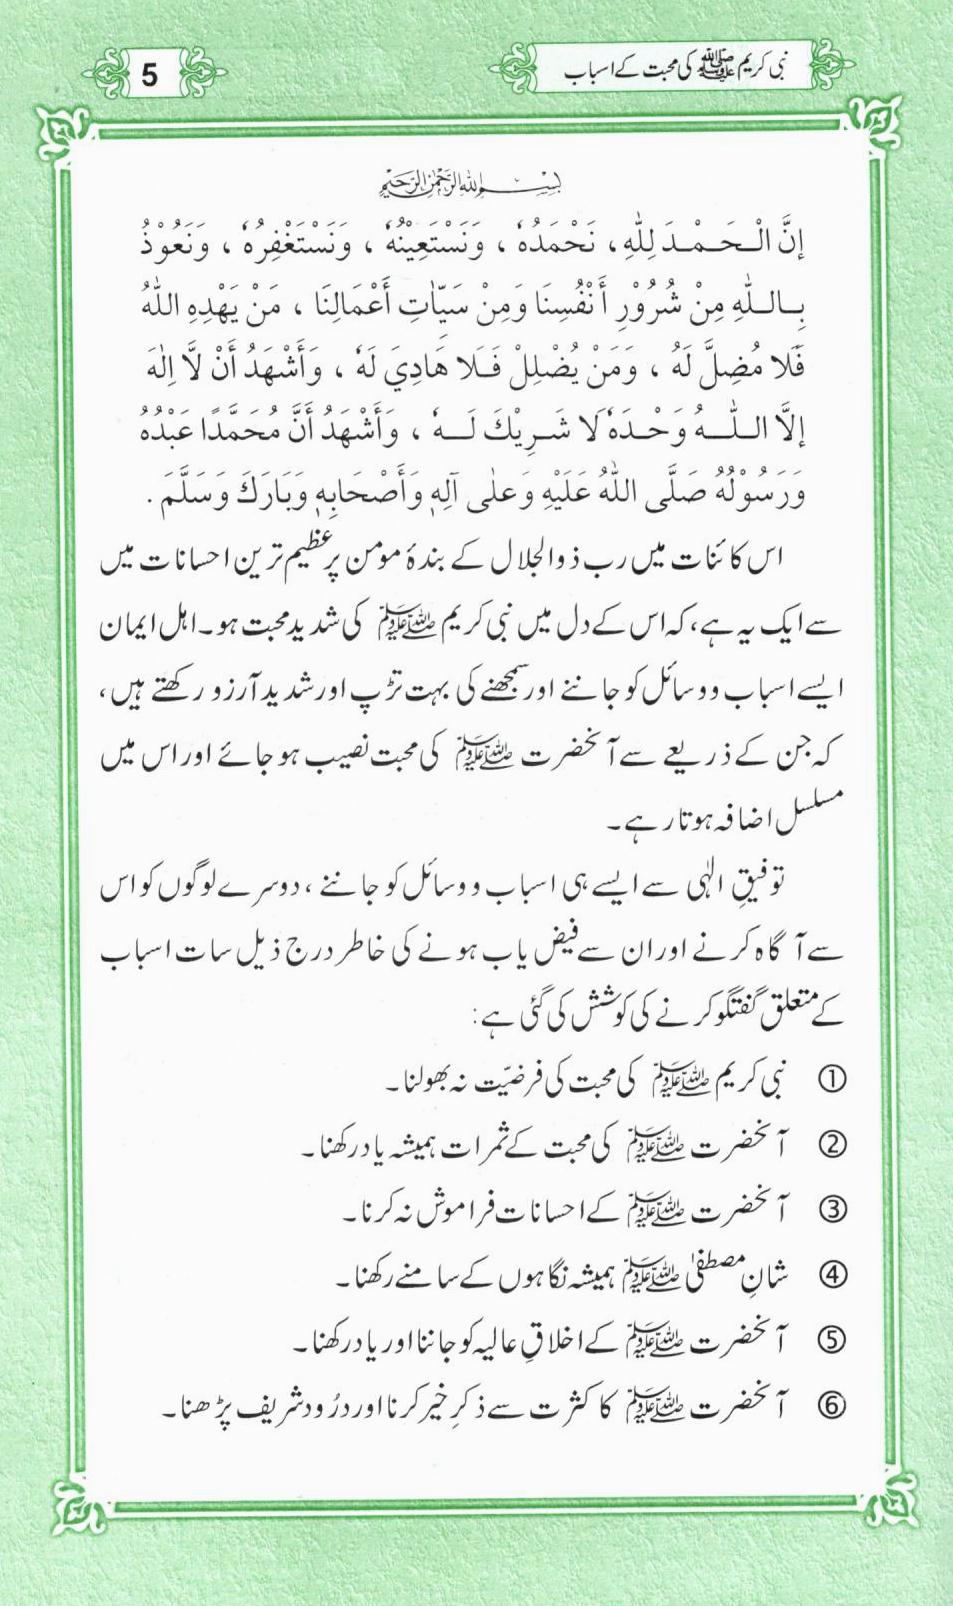 نبی کریم ﷺ کی محبت کے اسباب
5
بِسْمِ اللهِ الرَّحْمٰنِ الرَّحِيْمِ
إِنَّ الْـحَـمْـدَ لِلّٰهِ، نَحْمَدُهٗ ، وَنَسْتَعِيْنُهٗ ، وَنَسْتَغْفِرُهٗ ، وَنَعُوْذُ
بِـالـلّٰهِ مِنْ شُرُوْرِ أَنْفُسِنَا وَمِنْ سَيِّاٰتِ أَعْمَالِنَا ، مَنْ يَهْدِهِ اللّٰهُ
فَلَا مُضِلَّ لَهُ ، وَمَنْ يُضْلِلْ فَـلَا هَادِيَ لَهٗ ، وَأَشْهَدُ أَنْ لَّا اِلٰهَ
إِلَّا الـلّٰـهُ وَحْـدَهٗ لَا شَـرِيْكَ لَـهٗ ، وَأَشْهَدُ أَنَّ مُحَمَّدًا عَبْدُهُ
وَرَسُوْلُهُ صَلَّى اللّٰهُ عَلَيْهِ وَعَلٰى آلِهٖ وَأَصْحَابِهٖ وَبَارَكَ وَسَلَّمَ .
اس کائنات میں رب ذوالجلال کے بندۂ مومن پر عظیم ترین احسانات میں
سے ایک یہ ہے، کہ اس کے دل میں نبی کریم ﷺ کی شدید محبت ہو۔ اہل ایمان
ایسے اسباب و وسائل کو جاننے اور سمجھنے کی بہت تڑپ اور شدید آرزو رکھتے ہیں،
کہ جن کے ذریعے سے آنحضرت ﷺ کی محبت نصیب ہو جائے اور اس میں
مسلسل اضافہ ہوتا رہے۔
توفیقِ الٰہی سے ایسے ہی اسباب و وسائل کو جاننے ، دوسرے لوگوں کو اس
سے آگاہ کرنے اور ان سے فیض یاب ہونے کی خاطر درج ذیل سات اسباب
کے متعلق گفتگو کرنے کی کوشش کی گئی ہے:
① نبی کریم ﷺ کی محبت کی فرضیّت نہ بھولنا۔
② آنحضرت ﷺ کی محبت کے ثمرات ہمیشہ یاد رکھنا۔
③ آنحضرت ﷺ کے احسانات فراموش نہ کرنا۔
④ شانِ مصطفیٰ ﷺ ہمیشہ نگاہوں کے سامنے رکھنا۔
⑤ آنحضرت ﷺ کے اخلاقِ عالیہ کو جاننا اور یاد رکھنا۔
⑥ آنحضرت ﷺ کا کثرت سے ذکرِ خیر کرنا اور درُود شریف پڑھنا۔